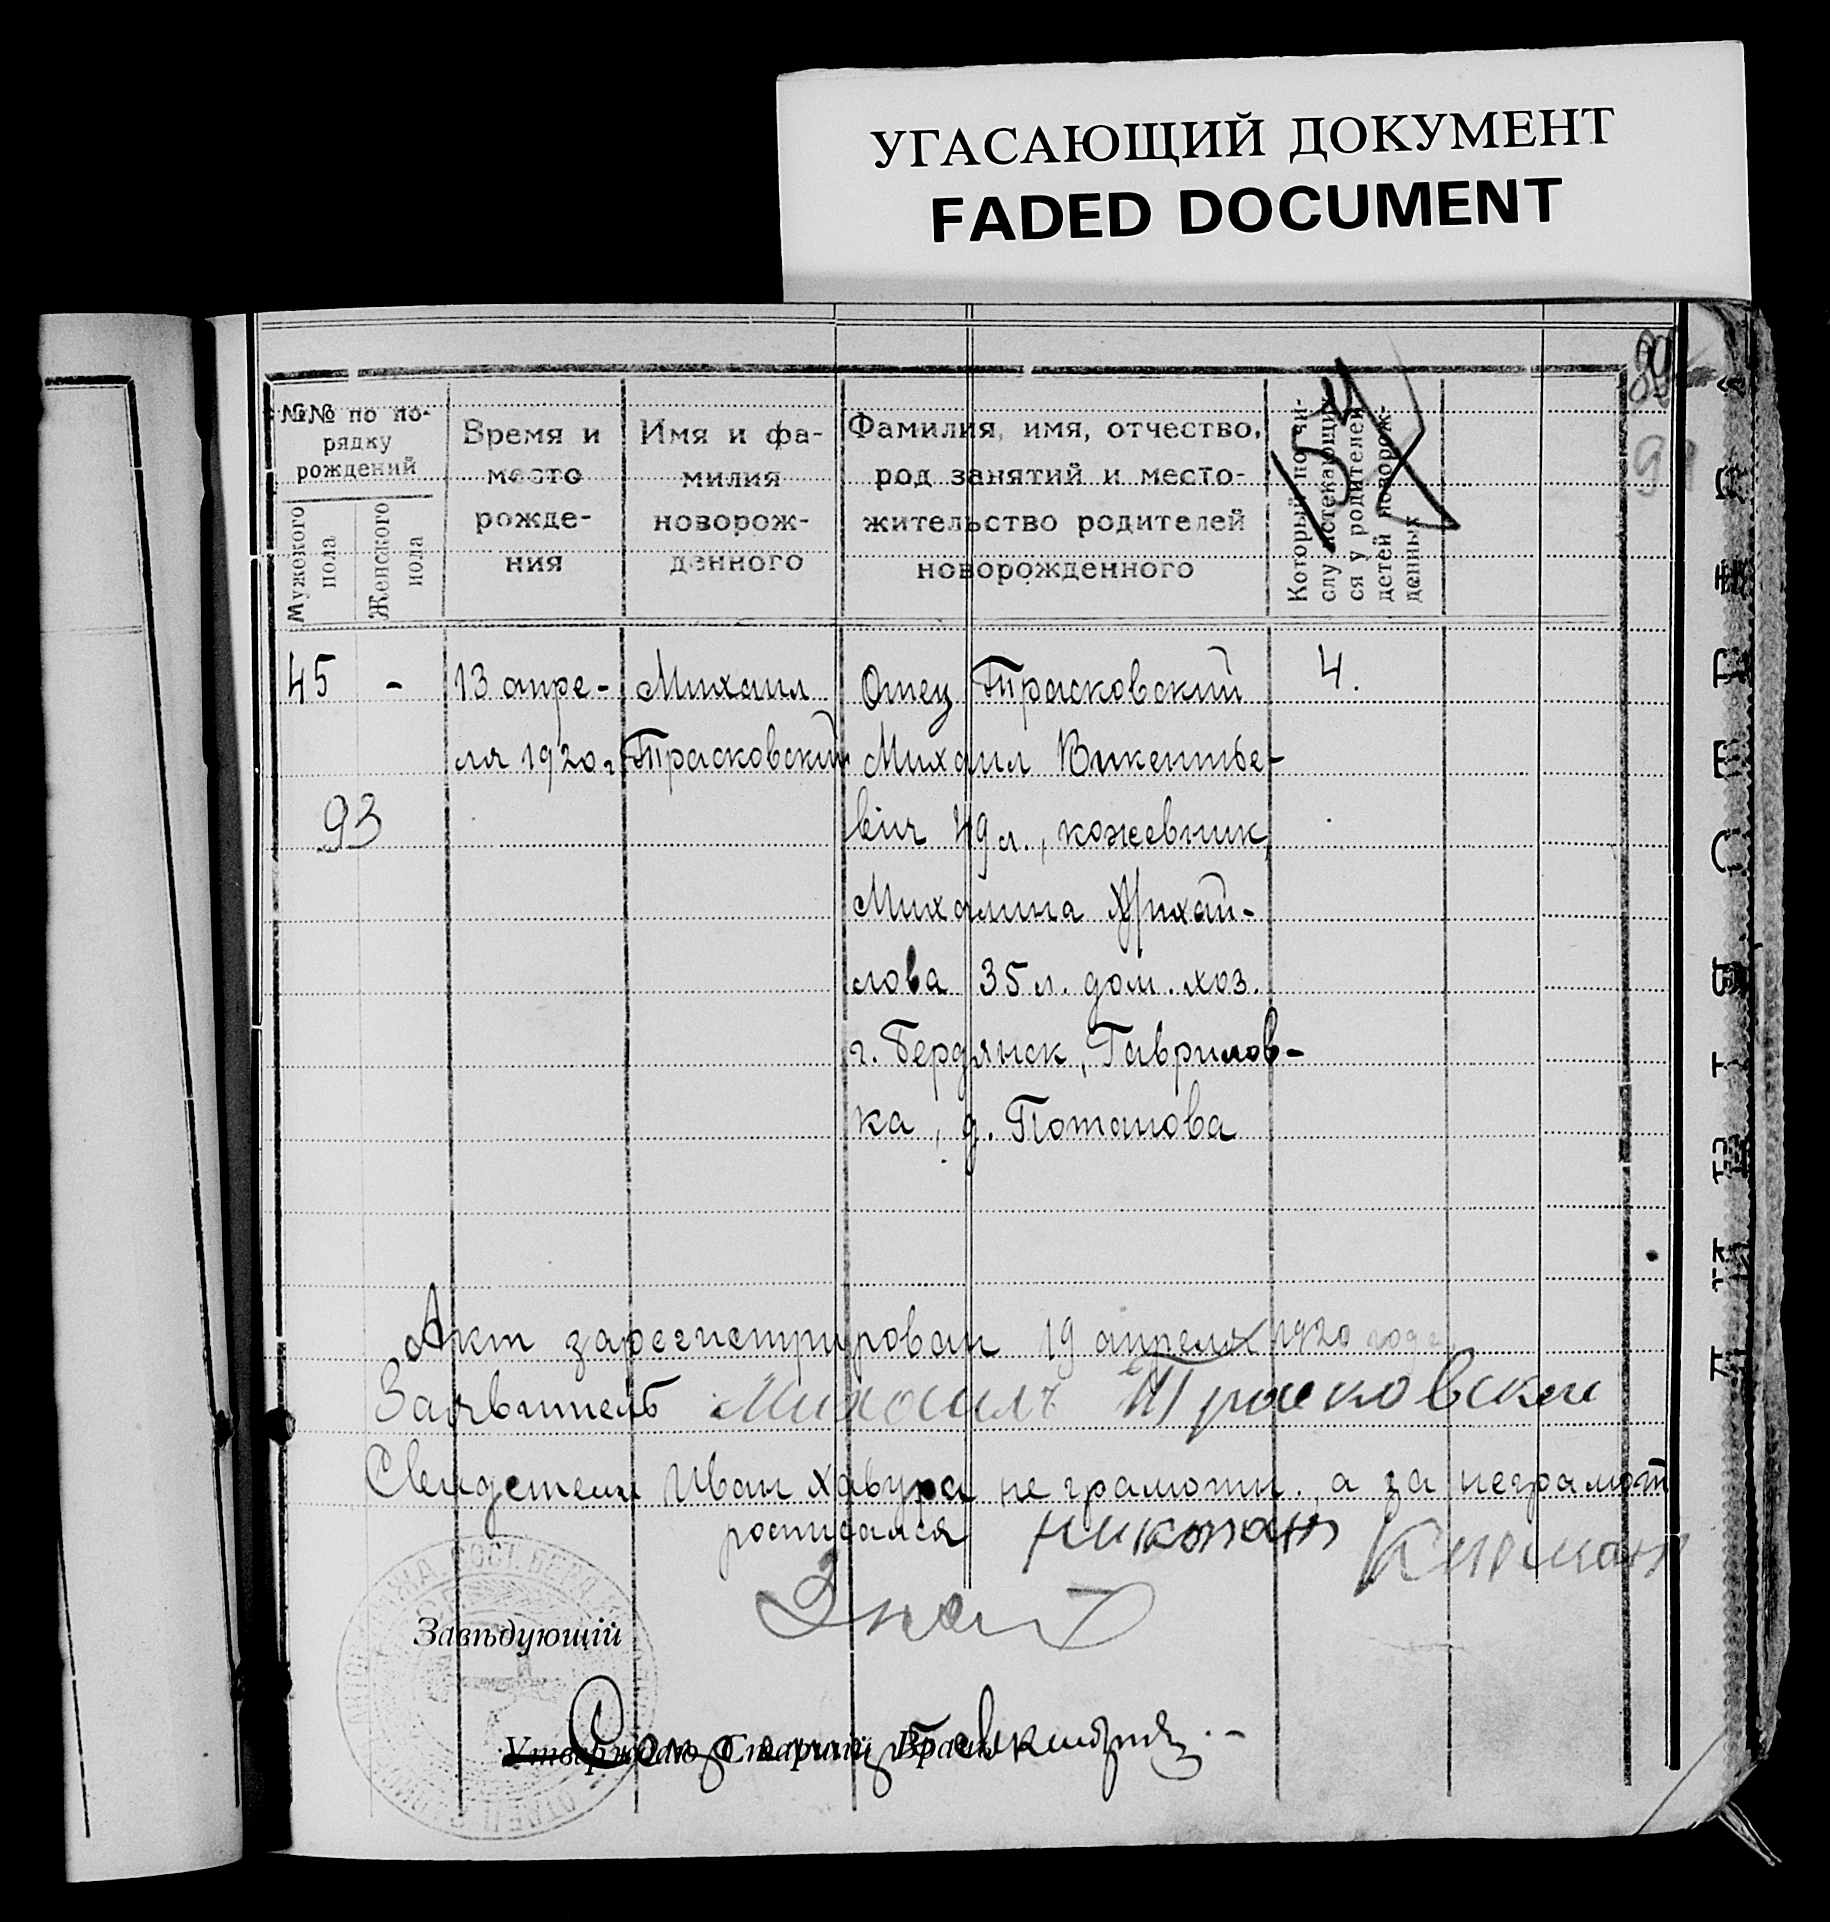 УГАСАЮЩИЙ ДОКУМЕНТ
FADED DOCUMENT
№№ по по-
рядку
рождений
Мужского
пола
Женского
пола
Время и
место
рожде-
ния
Имя и фа-
милия
новорож-
денного
Фамилия, имя, отчество,
род занятий и место-
жительство родителей
новорожденного
Который по чи-
слу истекающих
ся у родителей
детей новорож-
денных
45 - 13 апре- Михаил Отец Трасковский 4.
ля 1920 г. Трасковский Михаил Викентье-
93 вич 49 л., кожевник,
Михалина Михай-
лова 35 л. дом. хоз.
г. Бердянск, Гаврилов-
ка, д. Потапова
Акт зарегистрирован 19 апреля 1920 года
Заявитель Михаилъ Трасковский
Свидетели Иван Хавура не грамотн., а за неграмот
росписался
Завѣдующій
Утверждаю Старшій Врачъ